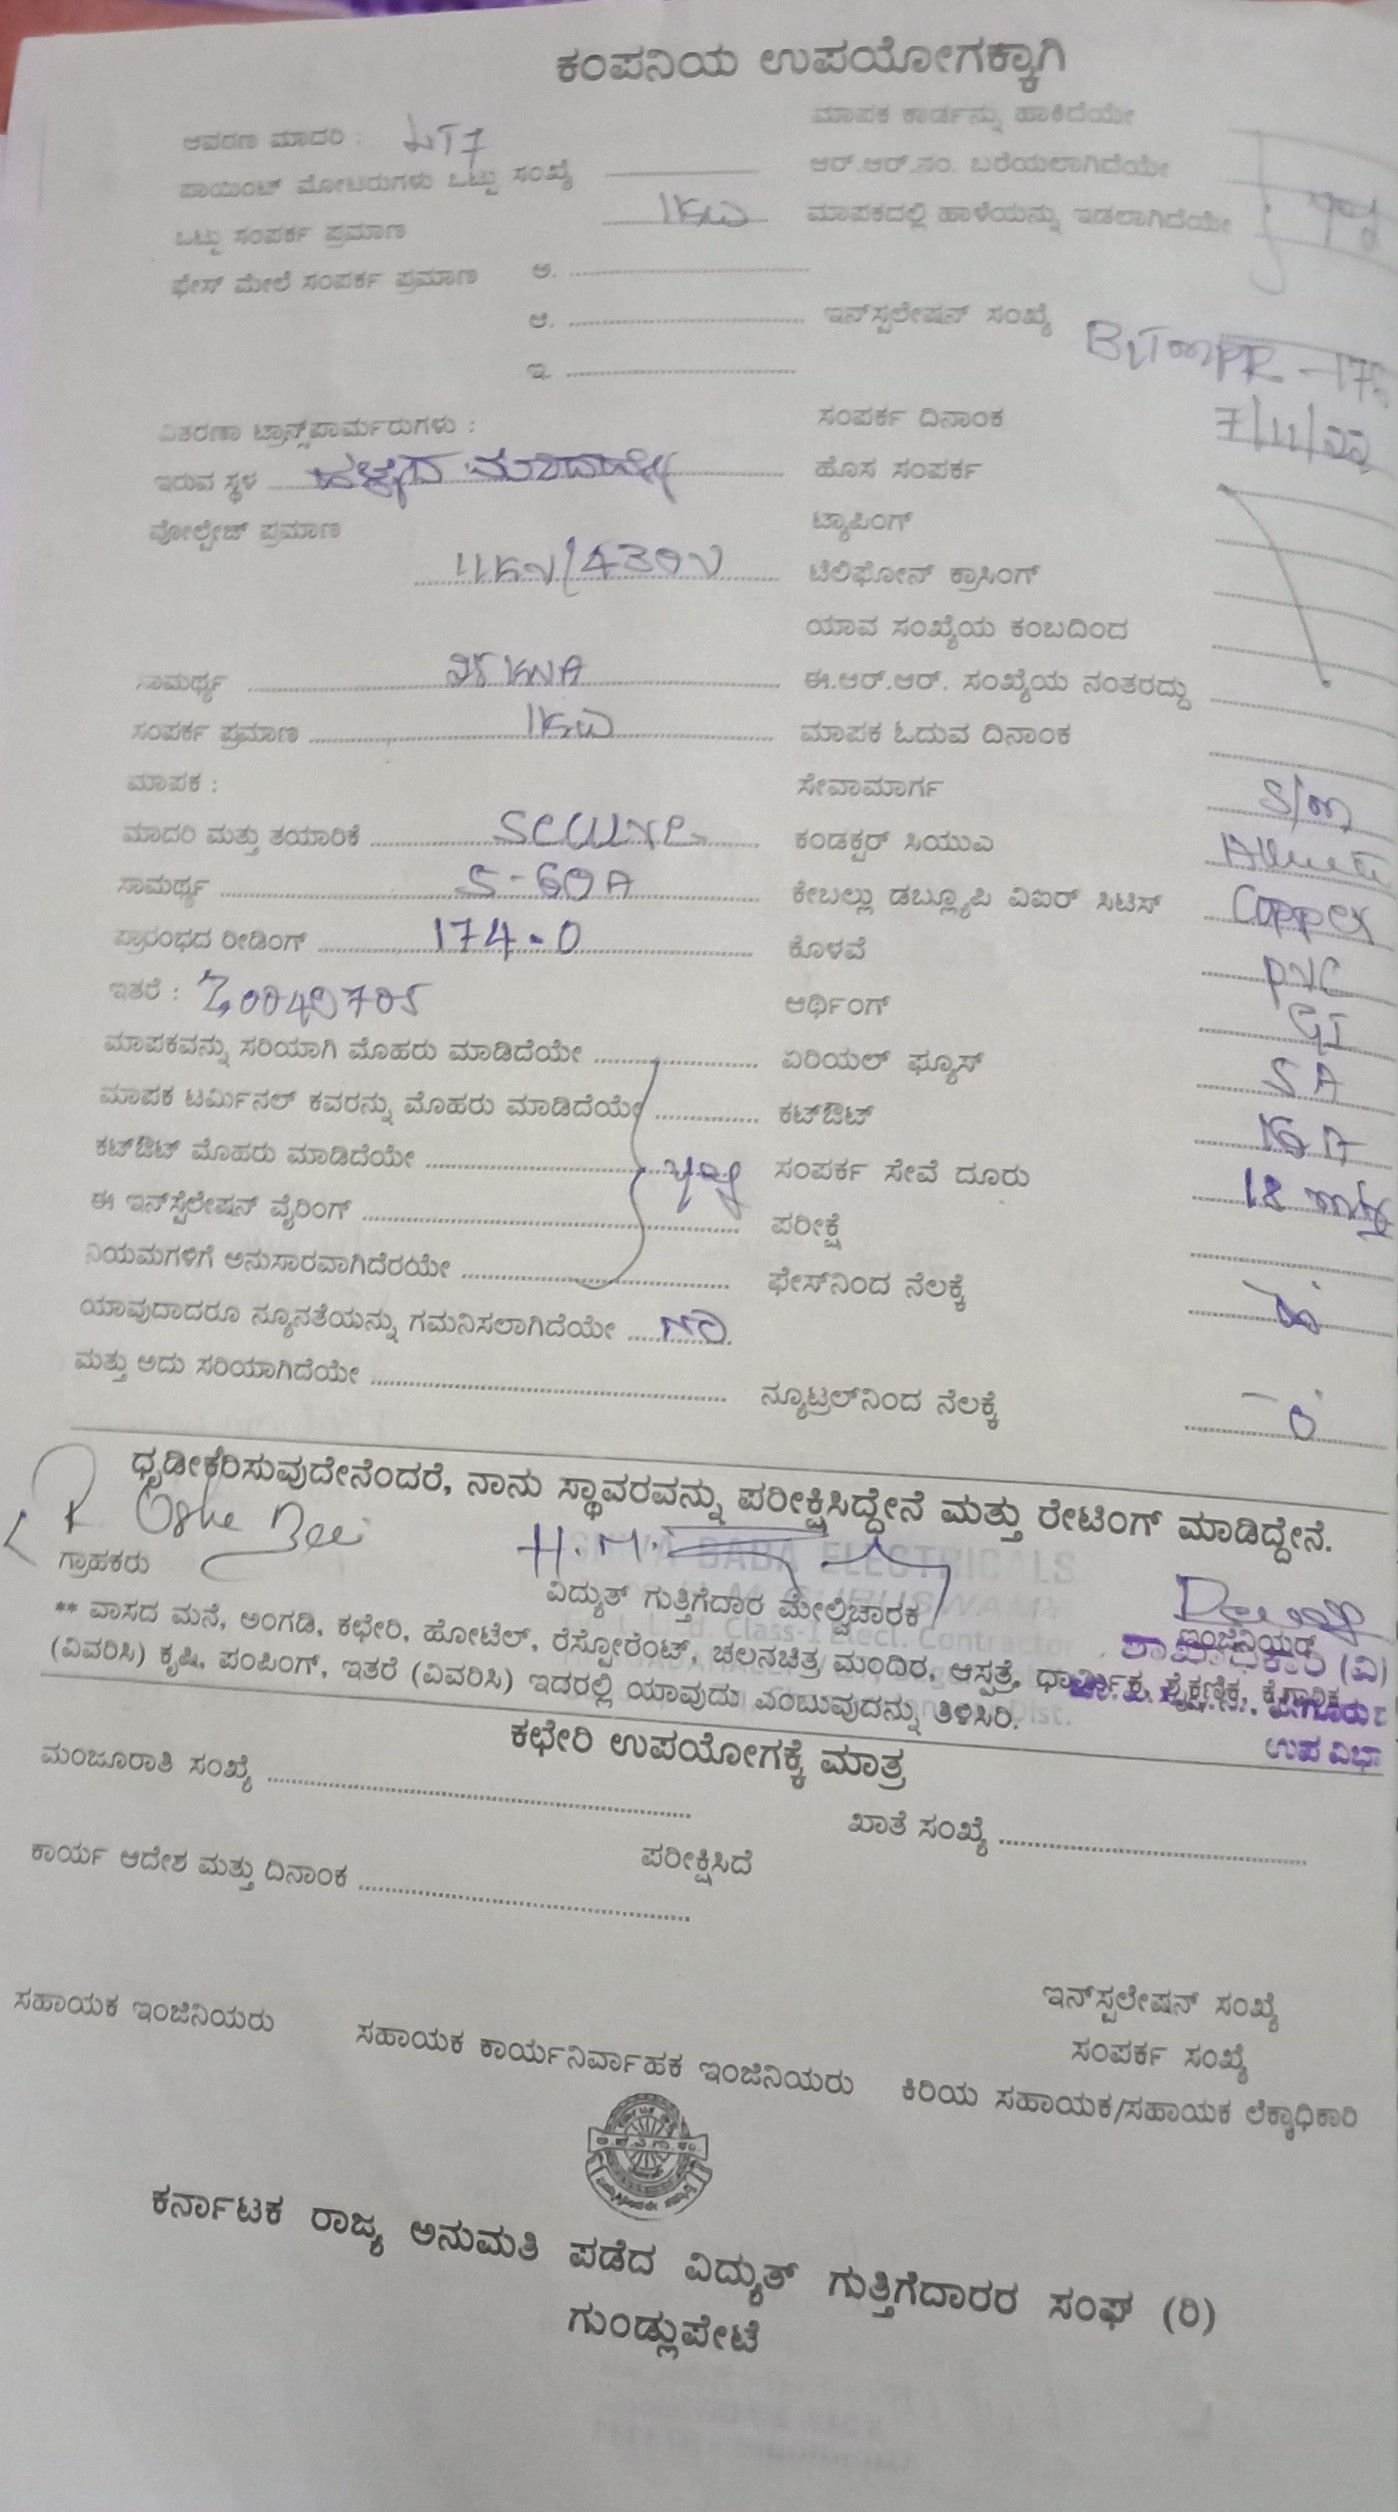 ಕಂಪನಿಯ ಉಪಯೋಗಕ್ಕಾಗಿ
ಆವರಣ ಮಾದರಿ : LT7
ಮಾಪಕ ಕಾರ್ಡನ್ನು ಹಾಕಿದೆಯೇ
ಪಾಯಿಂಟ್ ಮೋಟರುಗಳು ಒಟ್ಟು ಸಂಖ್ಯೆ
ಆರ್.ಆರ್.ನಂ. ಬರೆಯಲಾಗಿದೆಯೇ
ಒಟ್ಟು ಸಂಪರ್ಕ ಪ್ರಮಾಣ 1KW
ಮಾಪಕದಲ್ಲಿ ಹಾಳೆಯನ್ನು ಇಡಲಾಗಿದೆಯೇ
ಫೇಸ್ ಮೇಲೆ ಸಂಪರ್ಕ ಪ್ರಮಾಣ ಅ.
ಆ.
ಇನ್‌ಸ್ಪಲೇಷನ್ ಸಂಖ್ಯೆ
ಇ.
ವಿತರಣಾ ಟ್ರಾನ್ಸ್‌ಪಾರ್ಮರುಗಳು :
ಸಂಪರ್ಕ ದಿನಾಂಕ 7/11/22
ಇರುವ ಸ್ಥಳ
ಹೊಸ ಸಂಪರ್ಕ
ವೋಲ್ಟೇಜ್ ಪ್ರಮಾಣ 11KV/430V
ಟ್ಯಾಪಿಂಗ್
ಟೆಲಿಫೋನ್ ಕ್ರಾಸಿಂಗ್
ಯಾವ ಸಂಖ್ಯೆಯ ಕಂಬದಿಂದ
ಸಾಮರ್ಥ್ಯ 25 KVA
ಈ.ಆರ್.ಆರ್. ಸಂಖ್ಯೆಯ ನಂತರದ್ದು
ಸಂಪರ್ಕ ಪ್ರಮಾಣ 1KW
ಮಾಪಕ ಓದುವ ದಿನಾಂಕ
ಮಾಪಕ :
ಸೇವಾಮಾರ್ಗ S/m
ಮಾದರಿ ಮತ್ತು ತಯಾರಿಕೆ Secure
ಕಂಡಕ್ಟರ್ ಸಿಯುಎ
ಸಾಮರ್ಥ್ಯ 5-60A
ಕೇಬಲ್ಲು ಡಬ್ಲ್ಯೂಪಿ ವಿಐರ್ ಸಿಟಿಸ್ Copper
ಪ್ರಾರಂಭದ ರೀಡಿಂಗ್ 174.0
ಕೊಳವೆ PVC
ಇತರೆ :
ಆರ್ಥಿಂಗ್ GI
ಮಾಪಕವನ್ನು ಸರಿಯಾಗಿ ಮೊಹರು ಮಾಡಿದೆಯೇ
ಏರಿಯಲ್ ಫ್ಯೂಸ್ 5A
ಮಾಪಕ ಟರ್ಮಿನಲ್ ಕವರನ್ನು ಮೊಹರು ಮಾಡಿದೆಯೇ
ಕಟ್‌ಔಟ್ 16A
ಕಟ್‌ಔಟ್ ಮೊಹರು ಮಾಡಿದೆಯೇ yes
ಸಂಪರ್ಕ ಸೇವೆ ದೂರು 18 mts
ಈ ಇನ್‌ಸ್ಪೆಲೇಷನ್ ವೈರಿಂಗ್
ಪರೀಕ್ಷೆ
ನಿಯಮಗಳಿಗೆ ಅನುಸಾರವಾಗಿದೆರಯೇ
ಫೇಸ್‌ನಿಂದ ನೆಲಕ್ಕೆ
ಯಾವುದಾದರೂ ನ್ಯೂನತೆಯನ್ನು ಗಮನಿಸಲಾಗಿದೆಯೇ NO
ಮತ್ತು ಅದು ಸರಿಯಾಗಿದೆಯೇ
ನ್ಯೂಟ್ರಲ್‌ನಿಂದ ನೆಲಕ್ಕೆ
ಧೃಡೀಕರಿಸುವುದೇನೆಂದರೆ, ನಾನು ಸ್ಥಾವರವನ್ನು ಪರೀಕ್ಷಿಸಿದ್ದೇನೆ ಮತ್ತು ರೇಟಿಂಗ್ ಮಾಡಿದ್ದೇನೆ.
ಗ್ರಾಹಕರು
ವಿದ್ಯುತ್ ಗುತ್ತಿಗೆದಾರ ಮೇಲ್ವಿಚಾರಕ
ಇಂಜಿನಿಯರ್
** ವಾಸದ ಮನೆ, ಅಂಗಡಿ, ಕಛೇರಿ, ಹೋಟೆಲ್, ರೆಸ್ಪೋರೆಂಟ್, ಚಲನಚಿತ್ರ ಮಂದಿರ, ಆಸ್ಪತ್ರೆ, ಧಾರ್ಮಿಕ, ಶೈಕ್ಷಣಿಕ, ಕೈಗಾರಿಕ
(ವಿವರಿಸಿ) ಕೃಷಿ, ಪಂಪಿಂಗ್, ಇತರೆ (ವಿವರಿಸಿ) ಇದರಲ್ಲಿ ಯಾವುದು ಎಂಬುವುದನ್ನು ತಿಳಿಸಿರಿ.
ಕಛೇರಿ ಉಪಯೋಗಕ್ಕೆ ಮಾತ್ರ
ಮಂಜೂರಾತಿ ಸಂಖ್ಯೆ
ಖಾತೆ ಸಂಖ್ಯೆ
ಕಾರ್ಯ ಆದೇಶ ಮತ್ತು ದಿನಾಂಕ
ಪರೀಕ್ಷಿಸಿದೆ
ಇನ್‌ಸ್ಪಲೇಷನ್ ಸಂಖ್ಯೆ
ಸಂಪರ್ಕ ಸಂಖ್ಯೆ
ಸಹಾಯಕ ಇಂಜಿನಿಯರು
ಸಹಾಯಕ ಕಾರ್ಯನಿರ್ವಾಹಕ ಇಂಜಿನಿಯರು
ಕಿರಿಯ ಸಹಾಯಕ/ಸಹಾಯಕ ಲೆಕ್ಕಾಧಿಕಾರಿ
ಕರ್ನಾಟಕ ರಾಜ್ಯ ಅನುಮತಿ ಪಡೆದ ವಿದ್ಯುತ್ ಗುತ್ತಿಗೆದಾರರ ಸಂಘ (ರಿ)
ಗುಂಡ್ಲುಪೇಟೆ